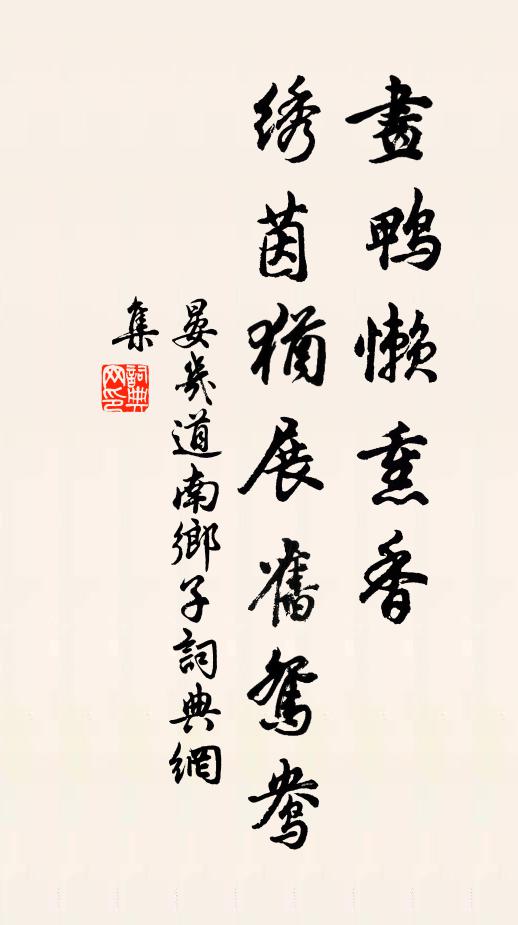 畫鴨懶熏香
绣茵猶展舊鴛鴦
晏幾道南鄉子詞典網
集
詞典网印